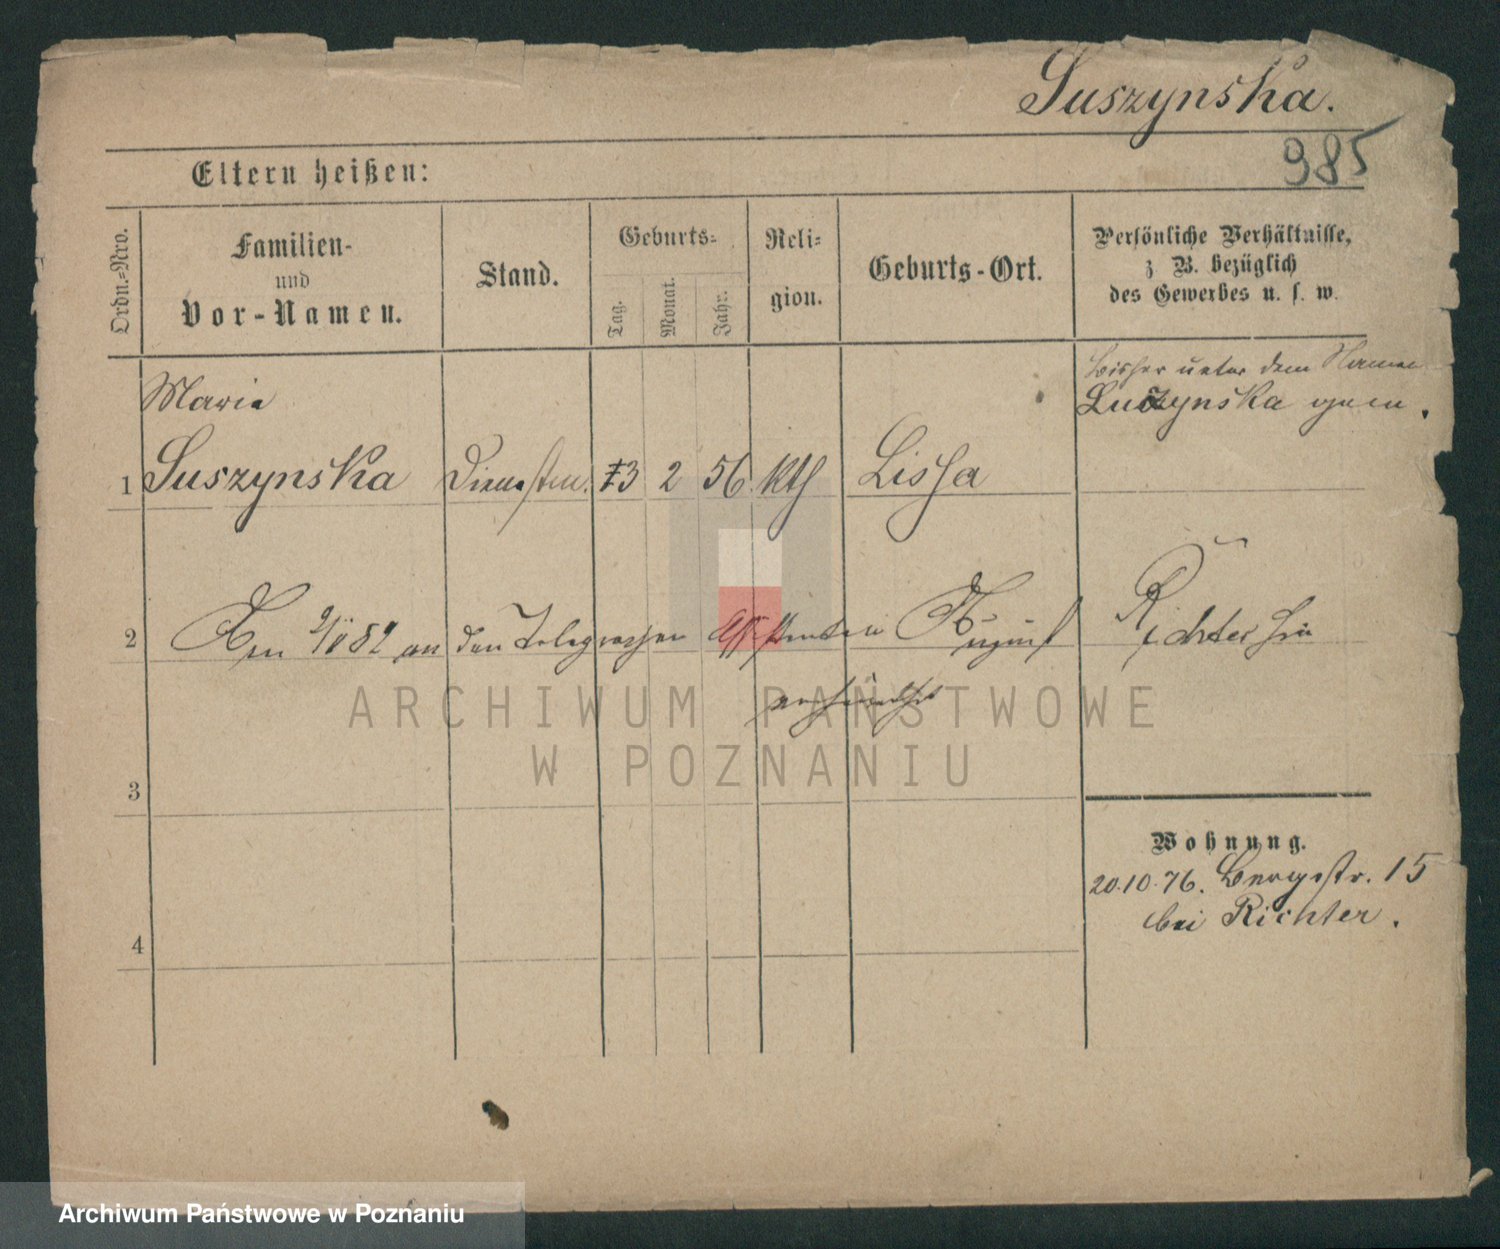 Suszynska.
985
Eltern heißen:
Ordn.=Nro.
Familien-
und
Vor-Namen.
Stand.
Geburts=
Tag.
Monat.
Jahr.
Reli=
gion.
Geburts-Ort.
Persönliche Verhältnisse,
z B. bezüglich
des Gewerbes u. s. w.
Marie
bisher unter dem Namen
Luszynska gem.
1 Suszynska 3 2 56 kth Lissa
2 Am 9/11 82 an den Telegraphen Assistenten August Richter hier
verheirathet
ARCHIWUM PAŃSTWOWE
W POZNANIU
3
Wohnung.
20.10.76. Bergstr. 15
bei Richter.
4
Archiwum Państwowe w Poznaniu